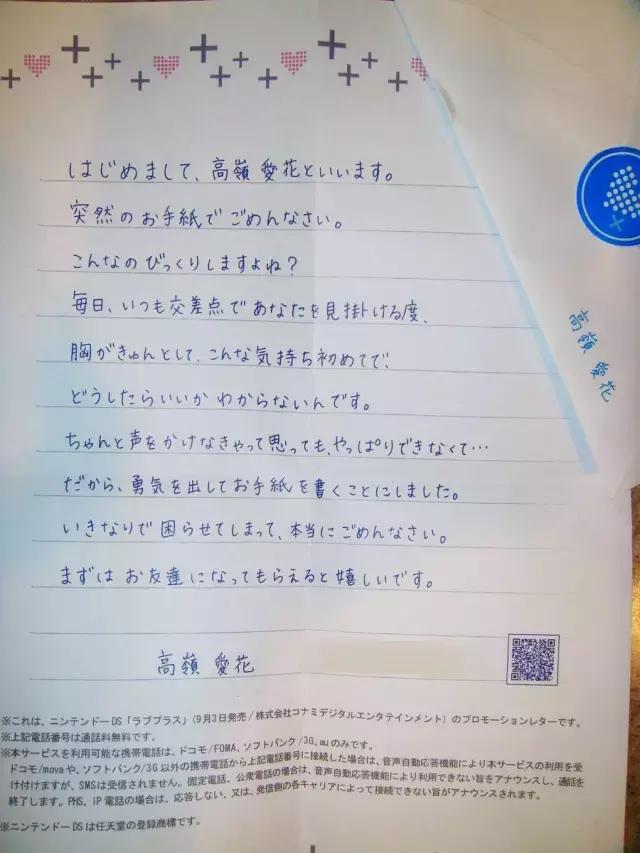 はじめまして、高嶺 愛花といいます。
突然のお手紙でごめんなさい。
こんなのびっくりしますよね?
毎日、いつも交差点であなたを見掛ける度、
胸がきゅんとして、こんな気持ち初めてで、
どうしたらいいかわからないんです。
ちゃんと声をかけなきゃって思っても、やっぱりできなくて…
だから、勇気を出してお手紙を書くことにしました。
いきなりで困らせてしまって、本当にごめんなさい。
まずはお友達になってもらえると嬉しいです。
高嶺 愛花
高嶺 愛花
※これは、ニンテンドーDS「ラブプラス」(9月3日発売/株式会社コナミデジタルエンタテインメント)のプロモーションレターです。
※上記電話番号は通話料無料です。
※本サービスを利用可能な携帯電話は、ドコモ/FOMA、ソフトバンク/3G、auのみです。
ドコモ/movaや、ソフトバンク/3G以外の携帯電話から上記電話番号に接続した場合は、音声自動応答機能により本サービスの利用を受
け付けますが、SMSは受信されません。固定電話、公衆電話の場合は、音声自動応答機能により利用できない旨をアナウンスし、通話を
終了します。PHS、IP電話の場合は、応答しない、又は、発信側の各キャリアによって接続できない旨がアナウンスされます。
※ニンテンドーDSは任天堂の登録商標です。